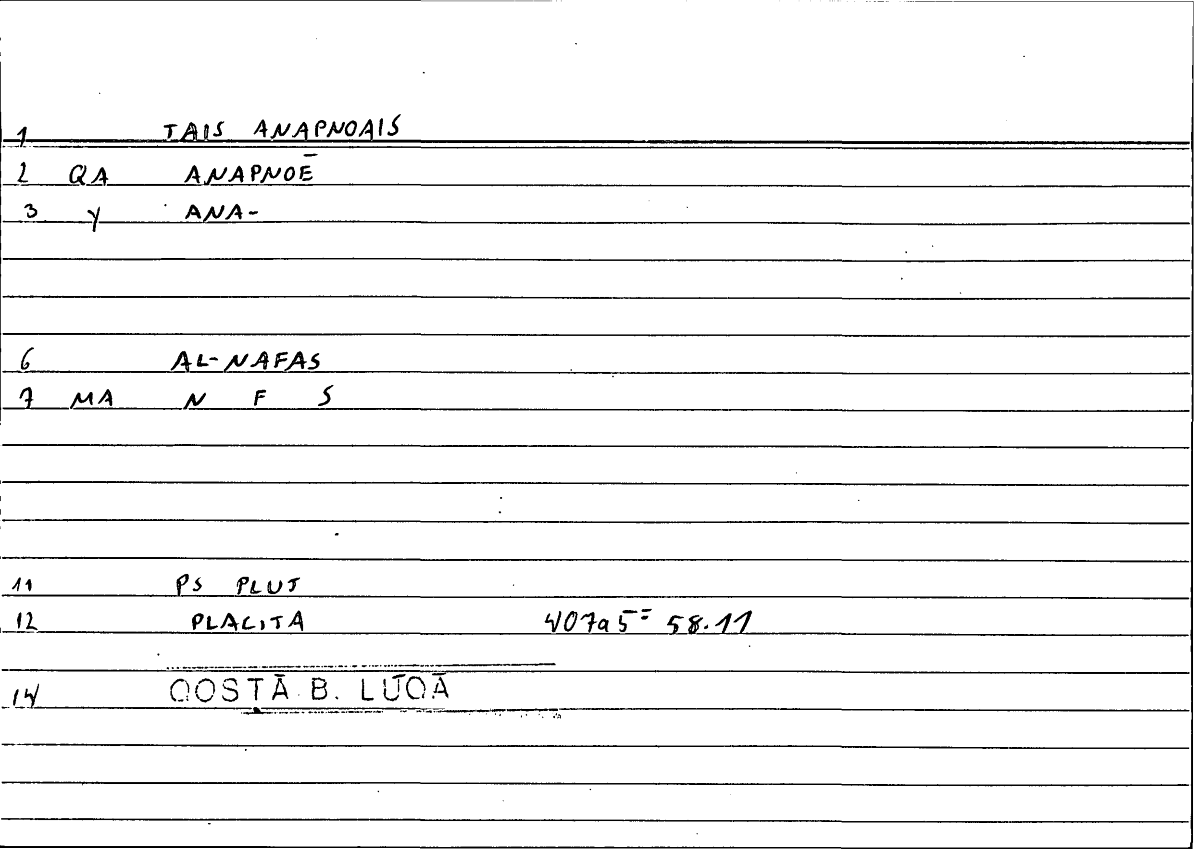 1 TAIS ANAPNOAIS
2 QA ANAPNOĒ
3 Y ANA-
6 AL-NAFAS
7 MA N F S
11 PS PLUT
12 PLACITA 407a5 = 58.11
14 QOSTĀ B. LŪQĀ